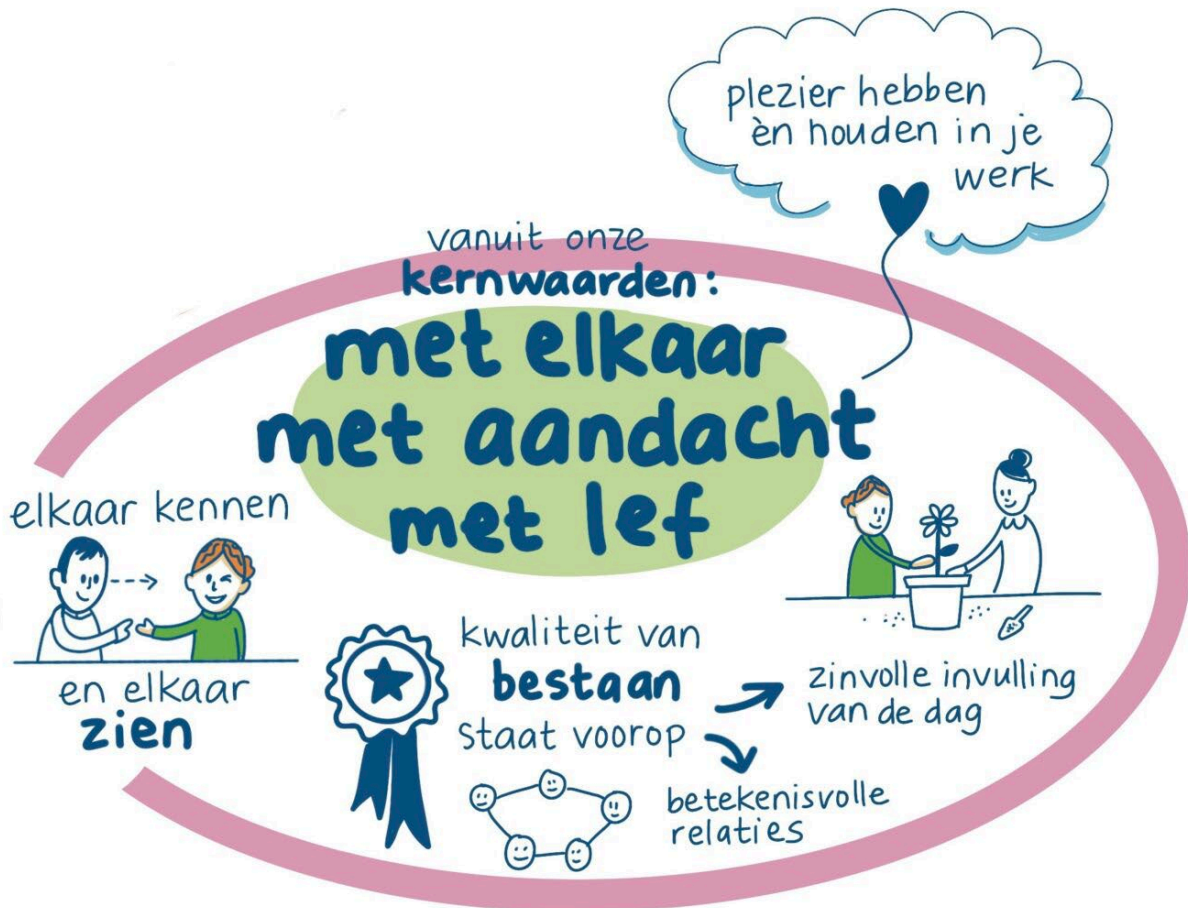 plezier hebben
èn houden in je
werk
vanuit onze
kernwaarden:
met elkaar
met aandacht
met lef
elkaar kennen
en elkaar
zien
kwaliteit van
bestaan
staat voorop
zinvolle invulling
van de dag
betekenisvolle
relaties